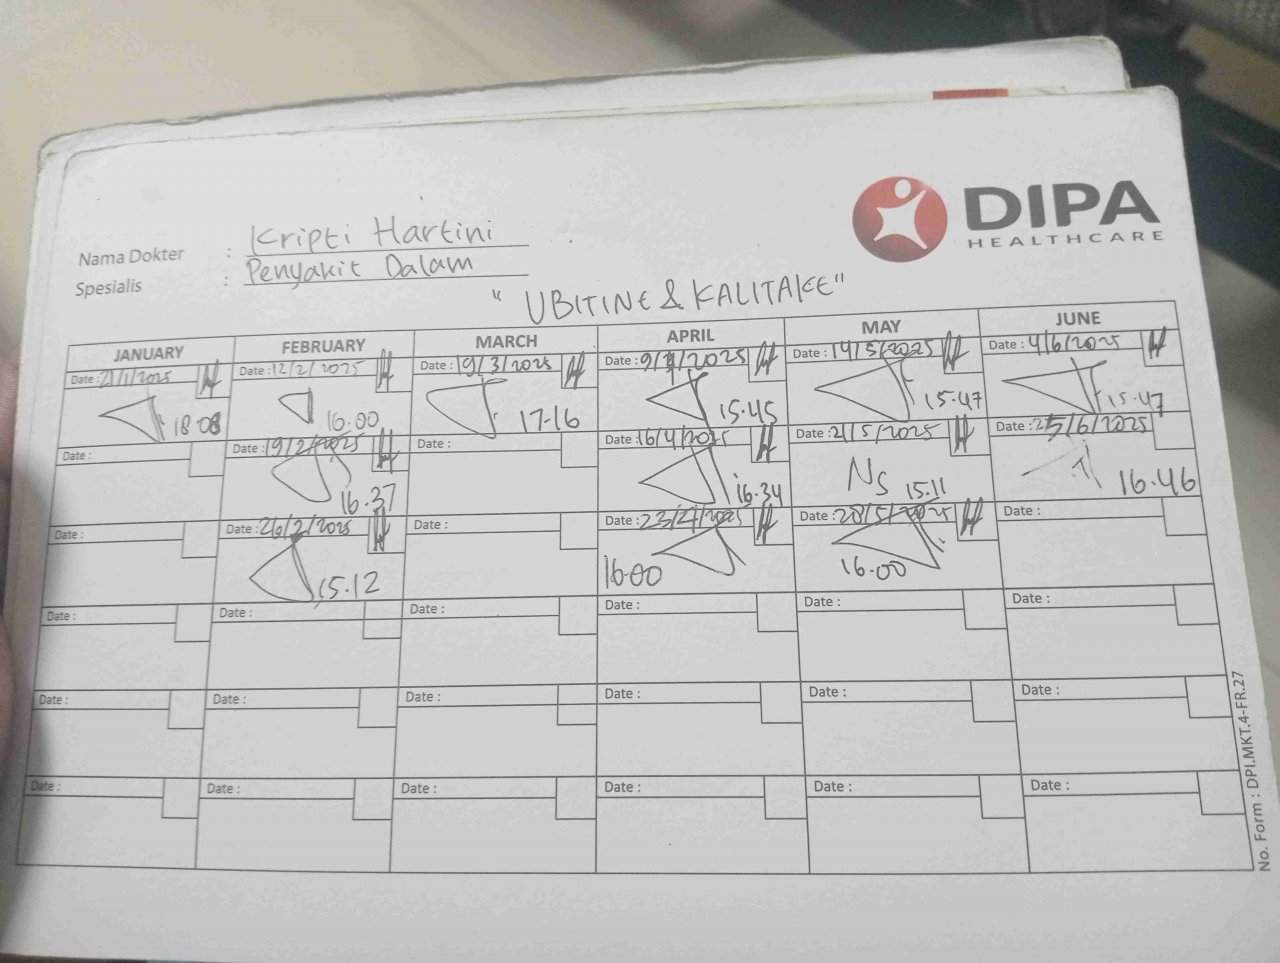 DIPA
HEALTHCARE
Nama Dokter : Kripti Hartini
Spesialis : Penyakit Dalam
"UBITINE & KALITAKE"
JANUARY FEBRUARY MARCH APRIL MAY JUNE
Date : 21/1/2025 Date : 12/2/2025 Date : 19/3/2025 Date : 9/4/2025 Date : 14/5/2025 Date : 4/6/2025
18.08 16.00 17.16 15.45 15.47 15.47
Date : Date : 19/2/2025 Date : Date : 16/4/2025 Date : 21/5/2025 Date : 25/6/2025
16.37 16.34 Ns 15.11 16.46
Date : Date : 26/2/2025 Date : Date : 23/4/2025 Date : 28/5/2025 Date :
15.12 16.00 16.00
Date : Date : Date : Date : Date : Date :
Date : Date : Date : Date : Date : Date :
Date : Date : Date : Date : Date : Date :
No. Form : DPI.MKT.4-FR.27